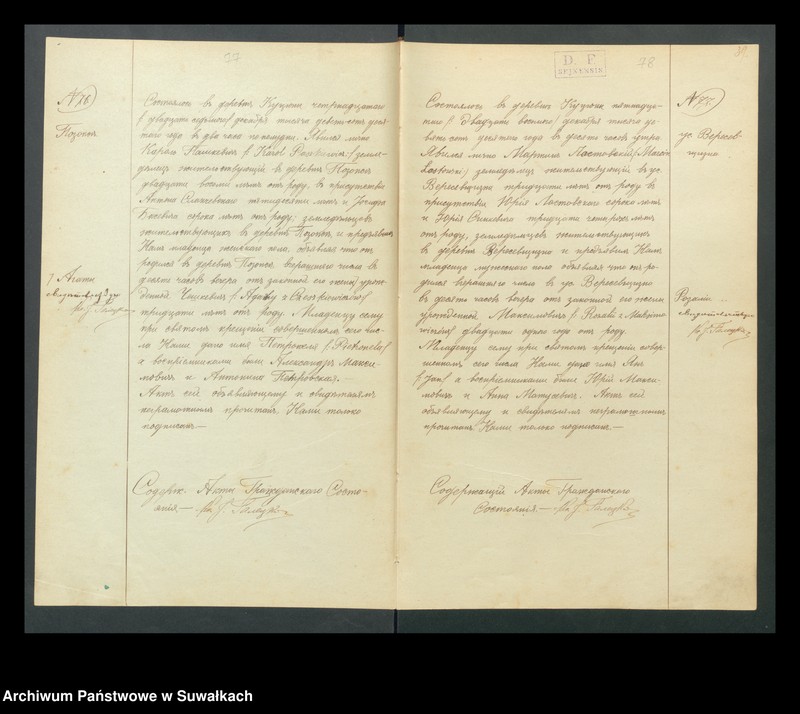 37
№ 76
Позопсь
Состоялось въ деревнѣ Куцюнахъ четырнадцатаго
/ двадцать седьмого / декабря тысяча девятьсотъ деся-
таго года въ два часа пополудни. Явился лично
Кароль Панкевичъ / Karol Pankiewicz / земле-
дѣлецъ жительствующій въ деревнѣ Позопсь
двадцати восьми лѣтъ отъ роду, въ присутствіи
Антона пятидесяти лѣтъ и
сорока лѣтъ отъ роду; земледѣльцевъ
жительствующихъ въ деревнѣ Позопсь и предъявилъ
Намъ младенца женскаго пола, объявляя что онъ
родился въ деревнѣ Позопсь вчерашняго числа въ
десять часовъ вечера отъ законной его жены урож-
денной
тридцати лѣтъ отъ роду. Младенцу сему
при святомъ крещеніи совершенномъ сего чис-
ла Нами дано имя Петронеля / Petronela /
а воспріемниками были Александръ Макси-
мовичъ и Антонина Петровская.
Актъ сей объявляющему и свидѣтелямъ
неграмотнымъ прочитанъ, Нами только
подписанъ —
/ Агаты
свидѣтельствую
Содерж. Акты Гражданскаго Состо-
янія —
D. F.
SEJNENSIS
78
39
№ 77
ус. Вересов-
щизна
Состоялось въ деревнѣ Куцюнахъ пятнадца-
таго / двадцать восьмого / декабря тысяча де-
вятьсотъ десятаго года въ десять часовъ утра
Явился лично Мартинъ Ластовскій / Marcin
Łastowski / земледѣлецъ жительствующій въ ус.
Вересовщизна тридцати лѣтъ отъ роду въ
присутствіи Юрія Ластовскаго сорока лѣтъ
и Юрія тридцати четырехъ лѣтъ
отъ роду, земледѣльцевъ жительствующихъ
въ деревнѣ Вересовщизна и предъявилъ Намъ
младенца мужескаго пола объявляя что онъ ро-
дился вчерашняго числа въ ус. Вересовщизна
въ десять часовъ вечера отъ законной его жены
урожденной Максимовичъ / Rozalii z Maksimo-
wiczów / двадцати одного года отъ роду.
Младенцу сему при святомъ крещеніи совер-
шенномъ сего числа Нами дано имя Янъ
/ Jan / а воспріемниками были Юрій Макси-
мовичъ и Анна Матусевичъ. Актъ сей
объявляющему и свидѣтелямъ неграмотнымъ
прочитанъ Нами только подписанъ. —
Розаліи
свидѣтельствую
Содержащій Акты Гражданскаго
Состоянія. —
Archiwum Państwowe w Suwałkach